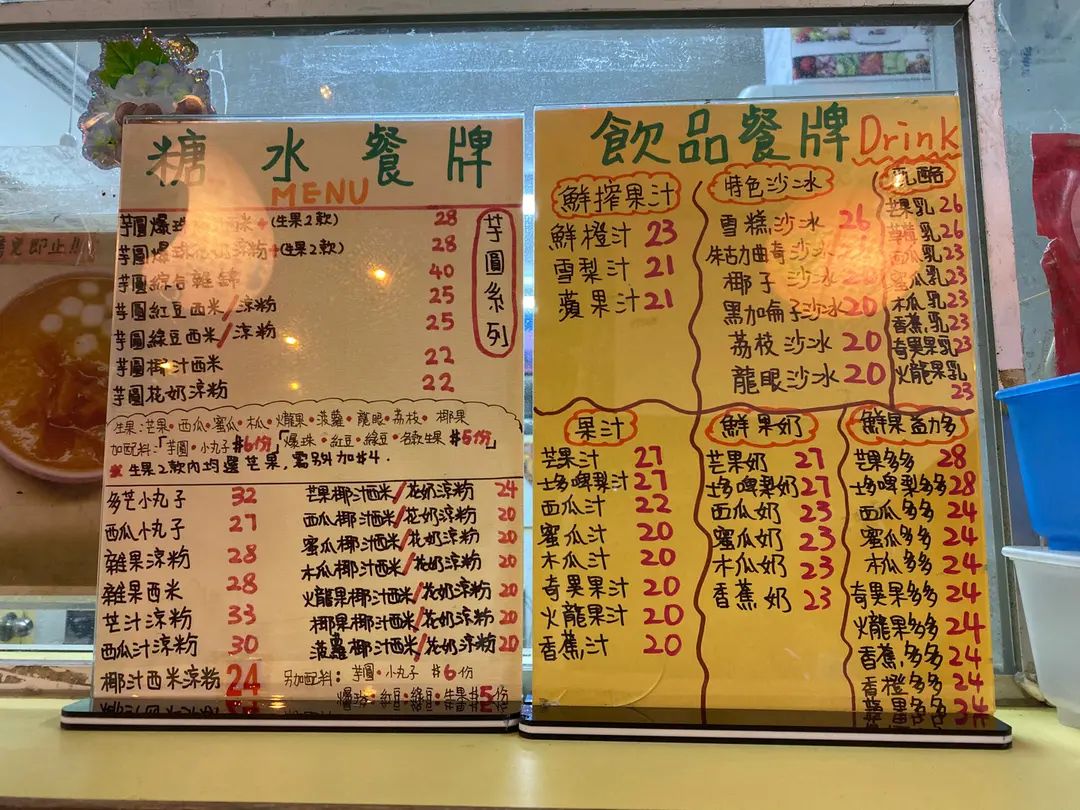 糖水餐牌
MENU
芋圓系列
芋圓爆珠 西米+(生果2款) 28
芋圓爆珠 涼粉+(生果2款) 28
芋圓綜合雜錦 40
芋圓紅豆西米/涼粉 25
芋圓綠豆西米/涼粉 25
芋圓椰汁西米 22
芋圓花奶涼粉 22
生果:芒果·西瓜·蜜瓜·木瓜·火龍果·菠蘿·龍眼·荔枝·椰果
加配料:「芋圓·小丸子 $6份」「爆珠·紅豆·綠豆·各款生果 $5份」
※生果2款內均選芒果,需另加$4.
多芒小丸子 32
西瓜小丸子 27
雜果涼粉 28
雜果西米 28
芒汁涼粉 33
西瓜汁涼粉 30
椰汁西米涼粉 24
芒果椰汁西米/花奶涼粉 24
西瓜椰汁西米/花奶涼粉 20
蜜瓜椰汁西米/花奶涼粉 20
木瓜椰汁西米/花奶涼粉 20
火龍果椰汁西米/花奶涼粉 20
椰果椰汁西米/花奶涼粉 20
菠蘿椰汁西米/花奶涼粉 20
另加配料: 芋圓·小丸子 $6份
爆珠·紅豆·綠豆·生果$5份
飲品餐牌 Drink
鮮搾果汁
鮮橙汁 23
雪梨汁 21
蘋果汁 21
特色沙冰
雪糕沙冰 26
朱古力曲奇沙冰
椰子 沙冰
黑加侖子沙冰 20
荔枝沙冰 20
龍眼沙冰 20
乳酪
芒果乳 26
草莓乳 26
西瓜乳 23
蜜瓜乳 23
木瓜乳 23
香蕉乳 23
奇異果乳 23
火龍果乳
23
果汁
芒果汁 27
士多啤梨汁 27
西瓜汁 22
蜜瓜汁 20
木瓜汁 20
奇異果汁 20
火龍果汁 20
香蕉汁 20
鮮果奶
芒果奶 27
士多啤梨奶 27
西瓜奶 23
蜜瓜奶 23
木瓜奶 23
香蕉奶 23
鮮果益力多
芒果多多 28
士多啤梨多多 28
西瓜多多 24
蜜瓜多多 24
木瓜多多 24
奇異果多多 24
火龍果多多 24
香蕉多多 24
香橙多多 24
蘋果多多 24